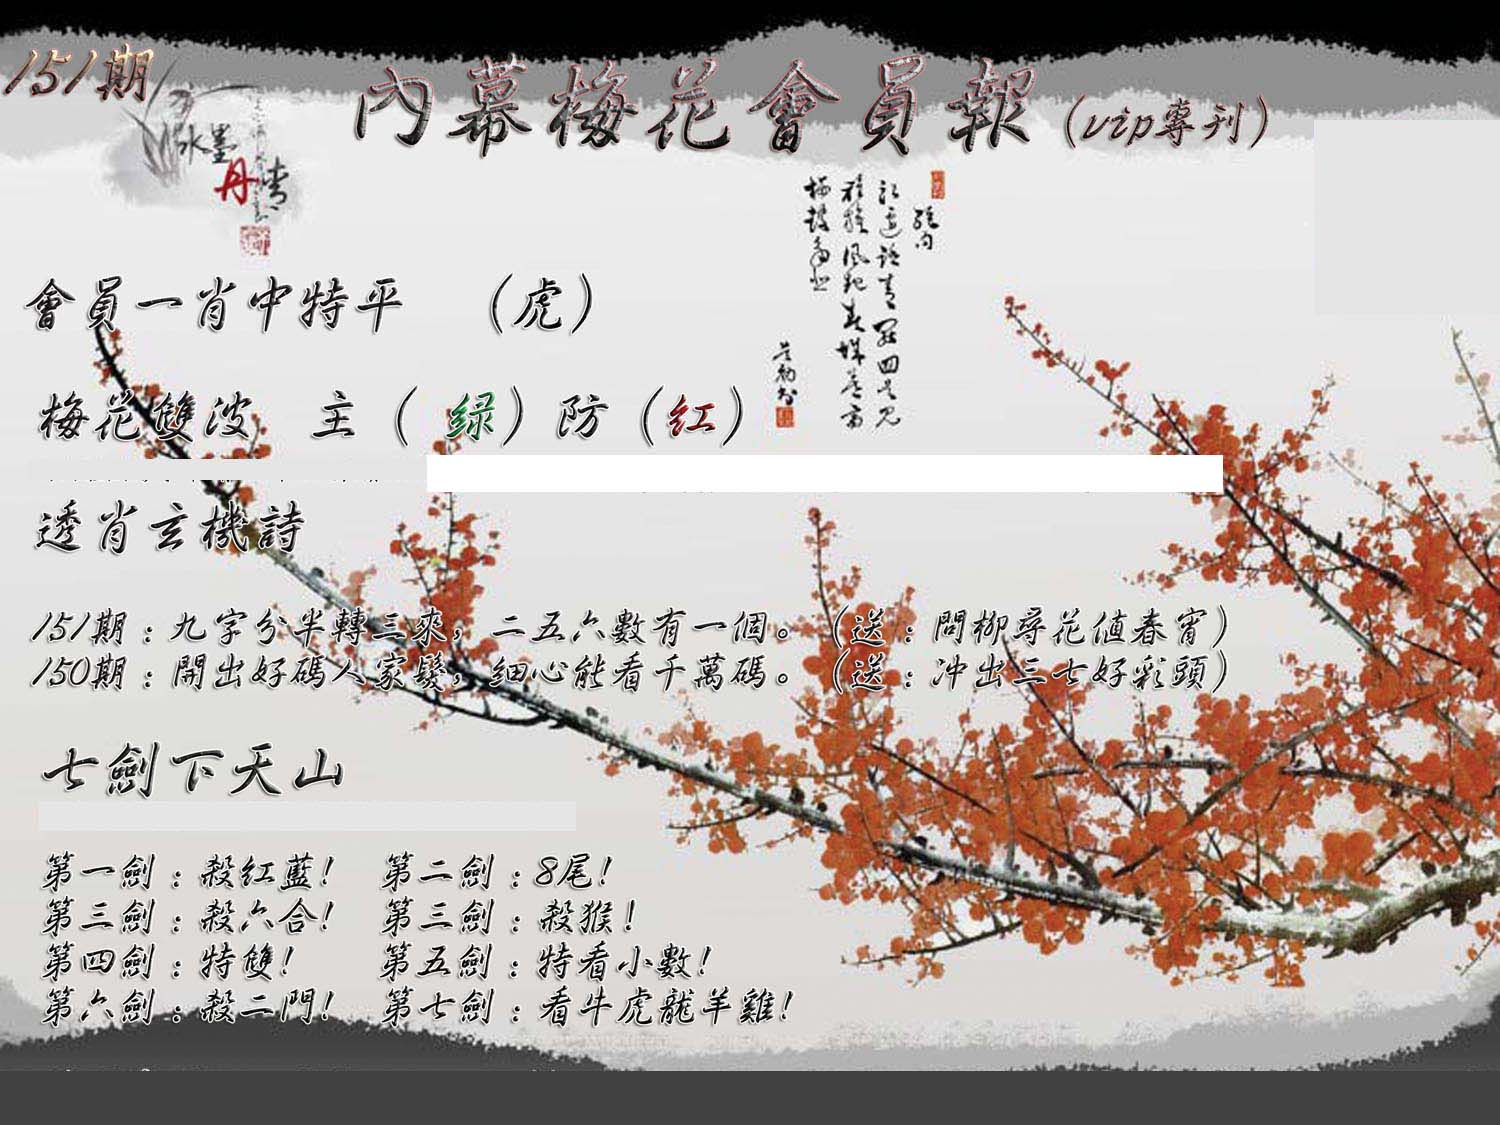 151期
內幕梅花會員報(vip專刊)
水墨
丹青
會員一肖中特平 （虎）
梅花雙波 主（ 绿）防（红）
透肖玄機詩
151期：九字分半轉三來，二五六數有一個。（送：問柳尋花值春宵）
150期：開出好碼人家髮，細心能看千萬碼。（送：冲出三七好彩頭）
七劍下天山
第一劍：殺紅藍! 第二劍：8尾!
第三劍：殺六合! 第三劍：殺猴!
第四劍：特雙! 第五劍：特看小數!
第六劍：殺二門! 第七劍：看牛虎龍羊雞!